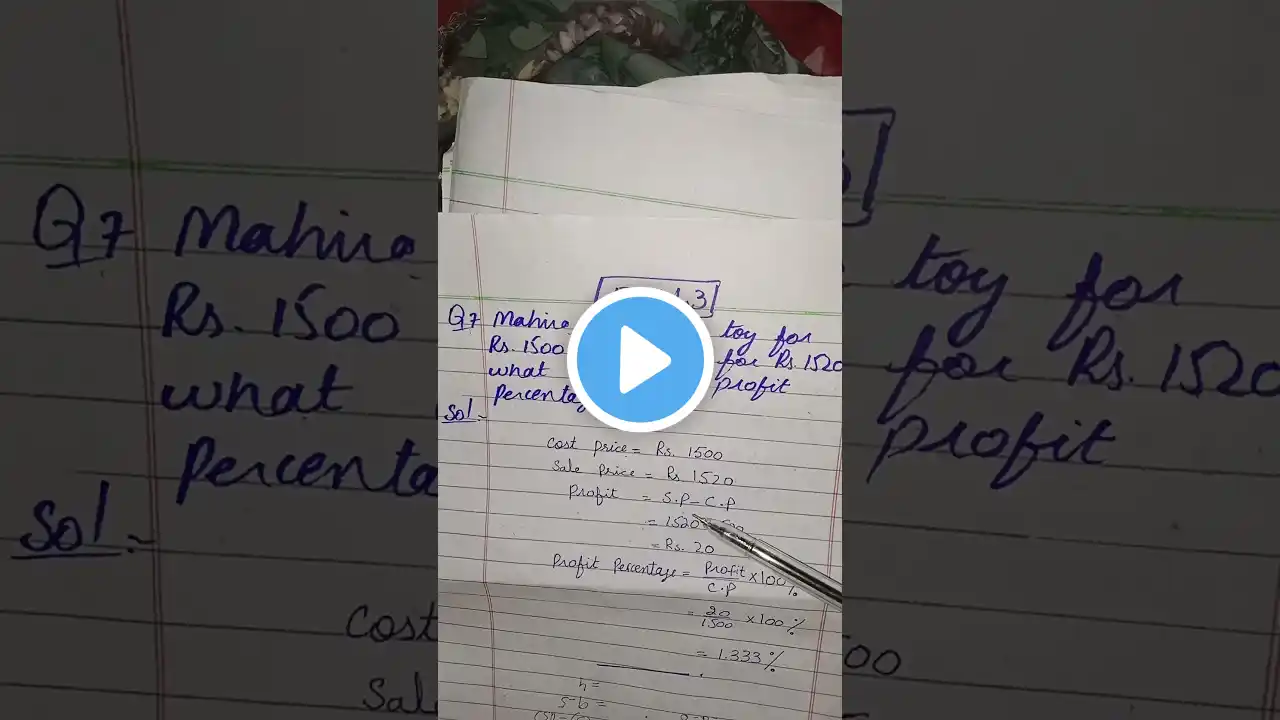 1.3
Q7 Mahira toy for
Rs. 1500 for Rs. 1520
what profit
Percentag
Sol:-
Cost price = Rs. 1500
Sale Price = Rs 1520
Profit = S.P - C.P
= 1520
= Rs. 20
Profit Percentage = Profit/C.P × 100%
= 20/1500 × 100%
= 1.333%